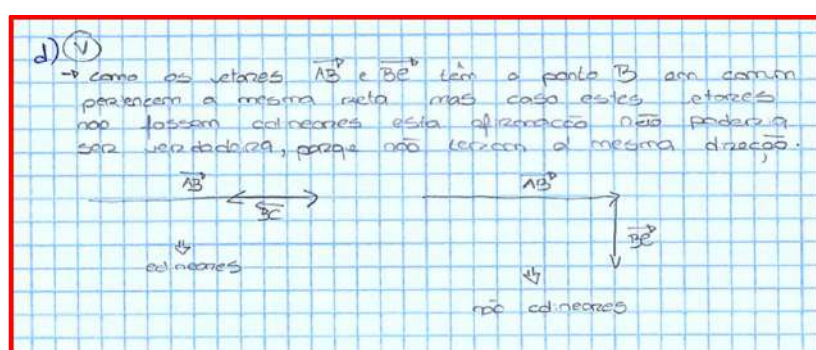 d) V
→ como os vetores AB e BC têm o ponto B em comum
pertencem a mesma reta mas caso estes vetores
não fossem colineares esta afirmação não poderia
ser verdadeira, porque não teriam a mesma direção.
AB AB
BC
BC
colineares
não colineares